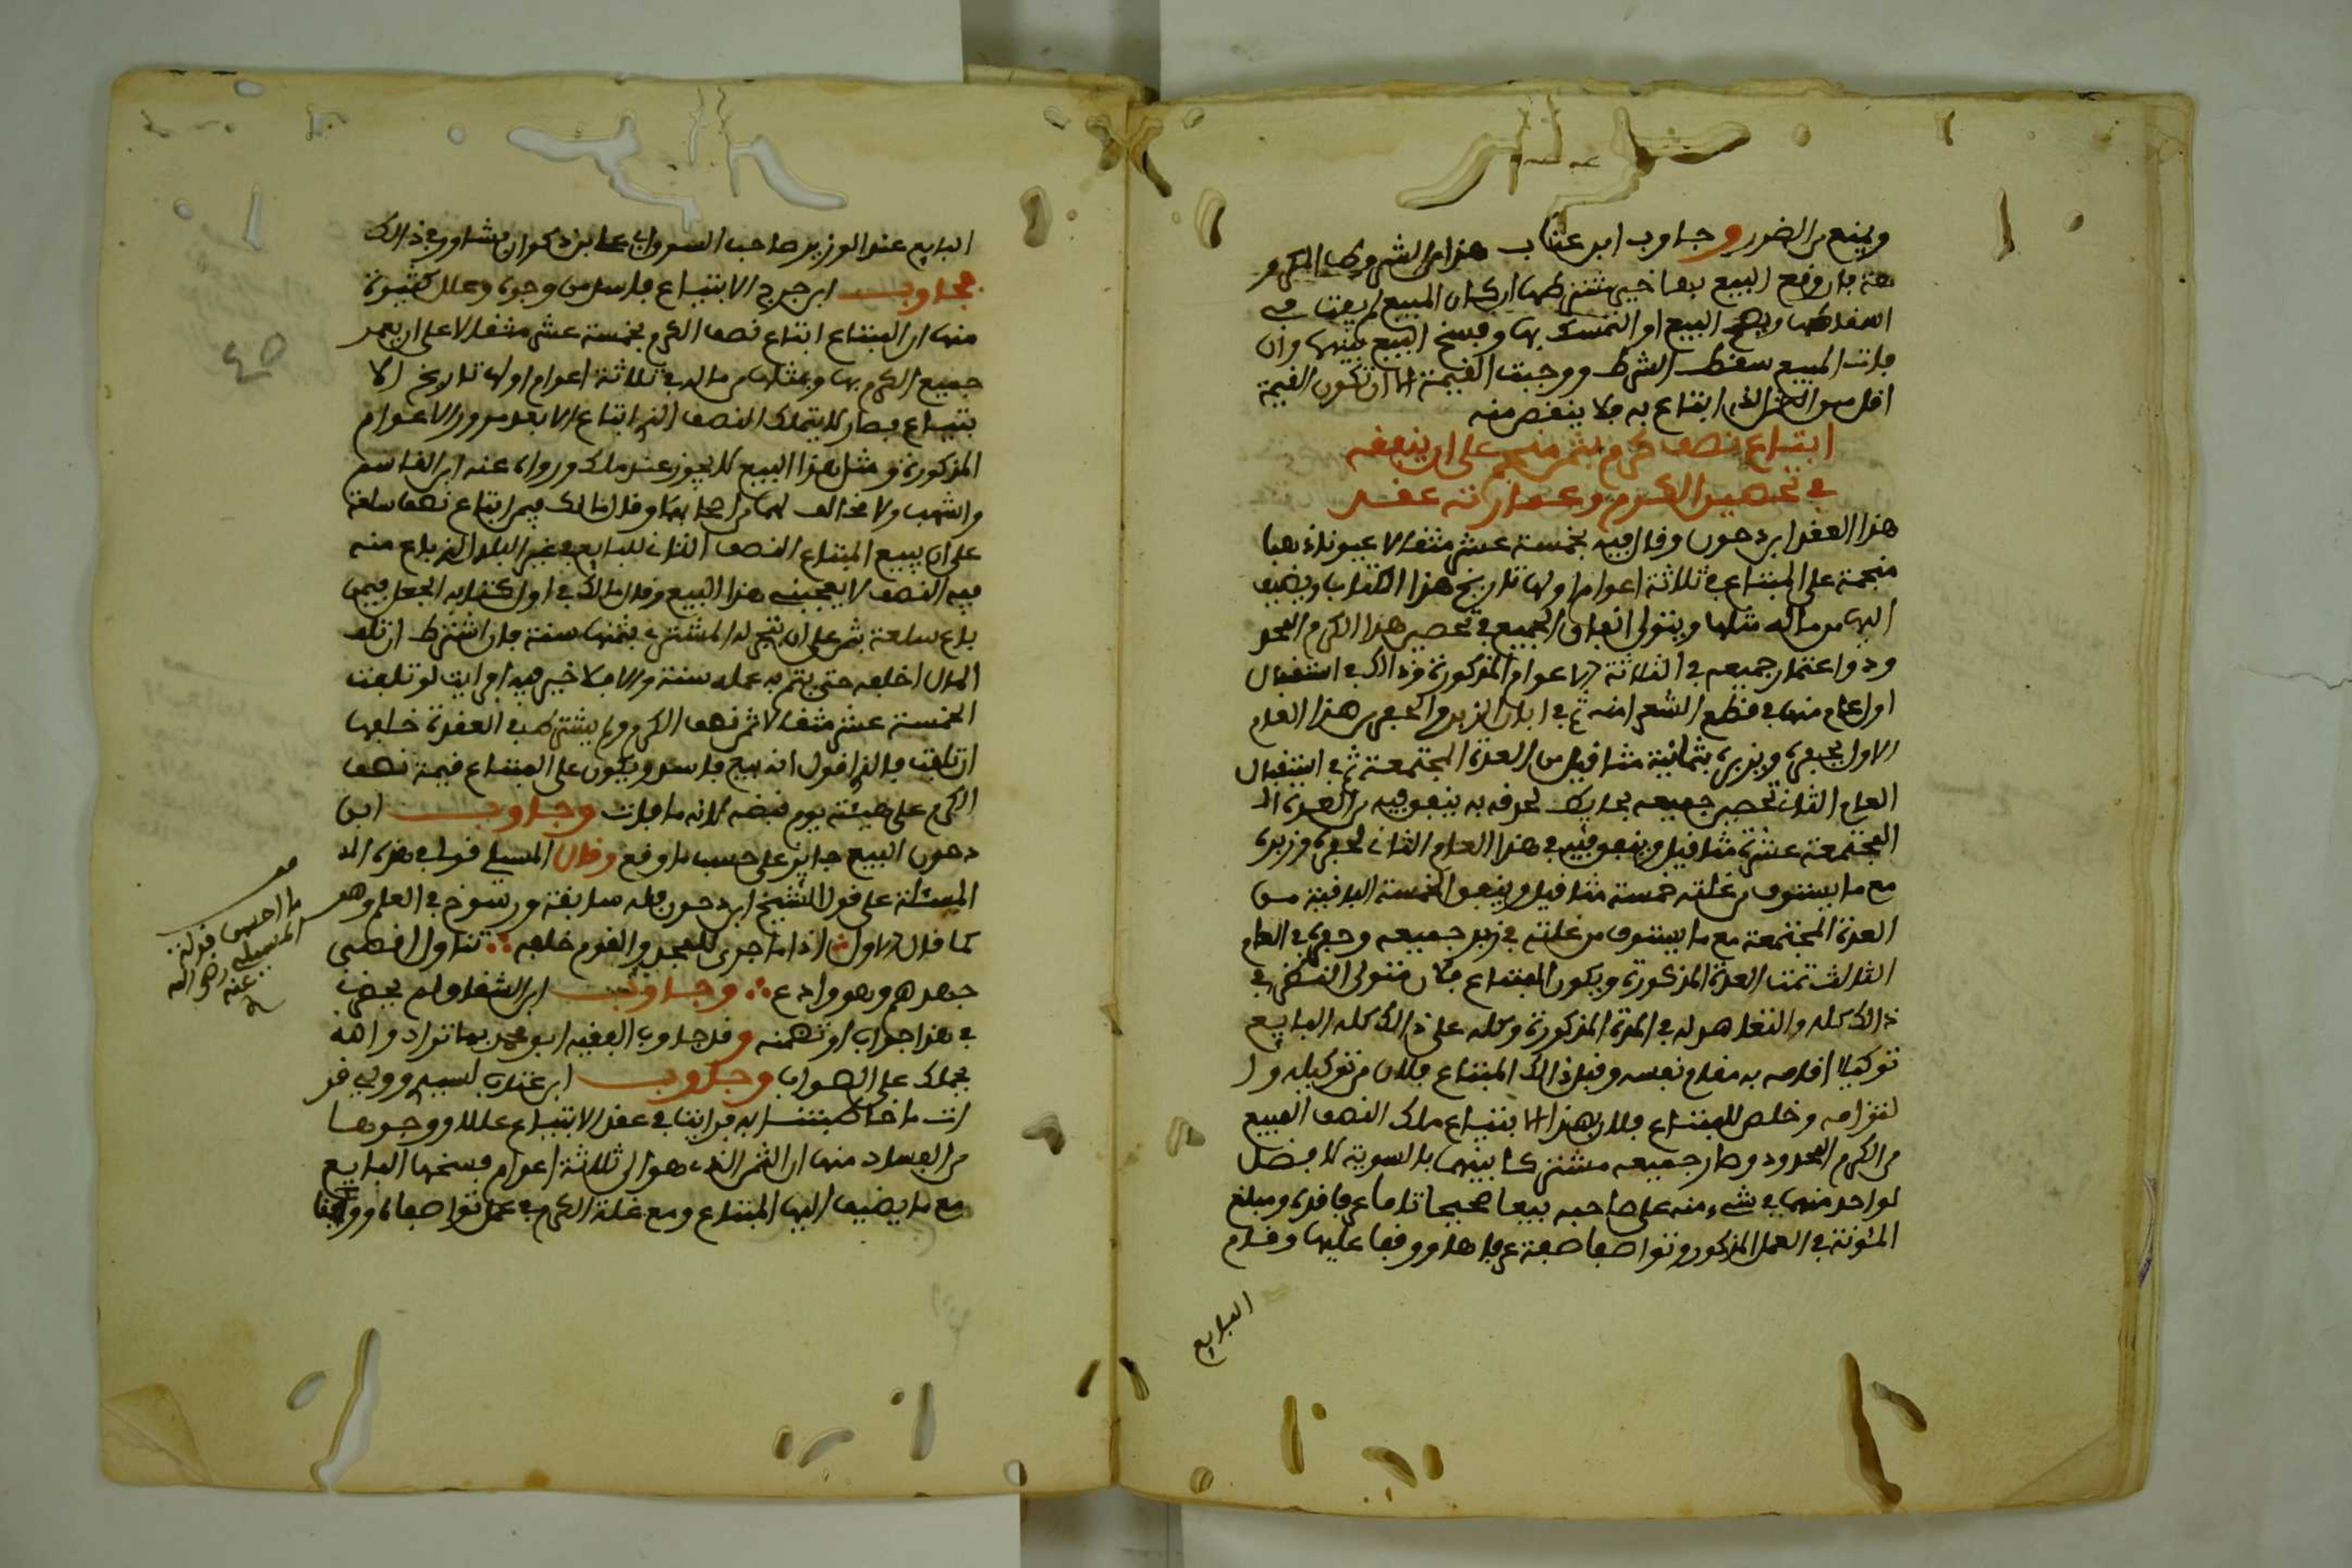 ويمنع من الضرر وجاوب ابن عتاب هذا من الشروط المكرو
هة فان وقع البيع بها خير مشترطها ان كان المبيع لم يفت في
اسقاطها ويصح البيع او التمسك بها ويفسخ البيع بينهما وان
فات المبيع سقط الشرط ووجبت القيمة الا ان تكون القيمة
اقل من الثمن الذي ابتاع به فلا ينقص منه
ابتاع نصف كرم بثمن منجم على ان ينفقه
في تحصير الكرم وعمارته عقد
هذا العقد ابن دحون وقال فيه بخمسة عشر مثقالا عيونا ذهبا
منجمة على المبتاع في ثلاثة اعوام اولها تاريخ هذا الكتاب ويضيف
اليها من ماله مثلها ويتولى انفاق الجميع في تحصير هذا الكرم المحد
ود واعتمار جميعه في الثلاثة الاعوام المذكورة وذالك في استقبال
اول عام منها في قطع الشعرا منه ثم في ابان الزبر والحفر من هذا العام
الاول بحفره وبزبره بثمانية مثاقيل من العدة المجتمعة ثم في استقبال
العام الثاني تحصير جميعه بحايط يحدق به ينفق فيه من العدة ال
المجتمعة عشرة مثاقيل وينفق فيه في هذا العام الثاني لحفره وزبره
مع ما يستوف من غلته خمسة مثاقيل وينفق الخمسة الباقية من
العدة المجتمعة مع ما يستوف من غلته في زبر جميعه وحفره في العام
الثالث تمت العدة المذكورة ويكون المبتاع فلان متولى النظر في
ذالك كله والتغا هو له في المدة المذكورة وكله على ذالك كله البايع
توكيلا اقامه به مقام نفسه وقبل ذالك المبتاع فلان من توكيله وا
لتزامه وخلص للمبتاع فلان بهذا الابتياع ملك النصف المبيع
من الكرم المحدود وصار جميعه مشتركا بينهما بالسوية لا فضل
لواحد منهما في شيء منه على صاحبه بيعا صحيحا تاما عرفا قدره ومبلغ
المئونة في العمل المذكور وتواصفا صفة عرفاها ووقفا عليها وقام
البايع
البايع عند الوزير صاحب السوق ابي علي بن ذكوان فشاور في ذالك
فجاوب ابن جرج الابتياع فاسد من وجوه وعلل كثيرة
منها ان المبتاع ابتاع نصف الكرم بخمسة عشر مثقالا على ان يعمر
جميع الكرم بها وبمثلها من ماله في ثلاثة اعوام اولها تاريخ الا
بتياع فصار لا يتملك النصف الذي ابتاع الا بعد مرور الاعوام
المذكورة ومثل هذا البيع لا يجوز عند ملك ورواه عنه ابن القاسم
واشهب ولا مخالف لهما من اصحابهما وقال مالك فيمن ابتاع نصف سلعة
على ان يبيع المبتاع النصف الثاني للبايع في غير البلد الذي باع منه
فيه النصف لا يعجبني هذا البيع وقال مالك في اول كتابه الجعل فيمن
باع سلعة بثمن على ان يتجر له المشتري بثمنها سنة فان اشترط ان تلف
المال اخلفه حتى يتم به عمله سنة والا فلا خير فيه ارايت لو تلفت
الخمسة عشر مثقالا ثمن نصف الكرم ولم يشترط في العقدة خلفها
ان تلفت فالذي اقول انه بيع فاسد ويكون على المبتاع قيمة نصف
الكرم على هيئته يوم قبضه لانه ما فات وجاوب ابن
دحون البيع جايز على حسب ما وقع وقال المسيلي قولي في هذه الم
المسئلة على قول الشيخ ابن دحون فله سابقة ورسوخ في العلم وهو
كما قال الاول اذا ما جرى للمجد والقوم خلفه تناول اقصى
جهدهم وهو وادع وجاوب ابن الشقاق ولم يحضر
في هذا جواب اوتضمنه وقد جاوب الفقيه ابو محمد بما تراه والله
يحملك على الصواب وجاوب ابن عتاب لسيدي ووليي قر
ات ما خاطبتنا به فراينا في عقد الابتياع عللا ووجوها
من الفساد منها ان الثمن الذي هو الى ثلاثة اعوام فسخها البايع
مع ما يضيف اليها المبتاع ومع غلة الكرم في عمل تواصفاه ووقفا
ما احسن قولة
المسيلي رضي الله
عنه